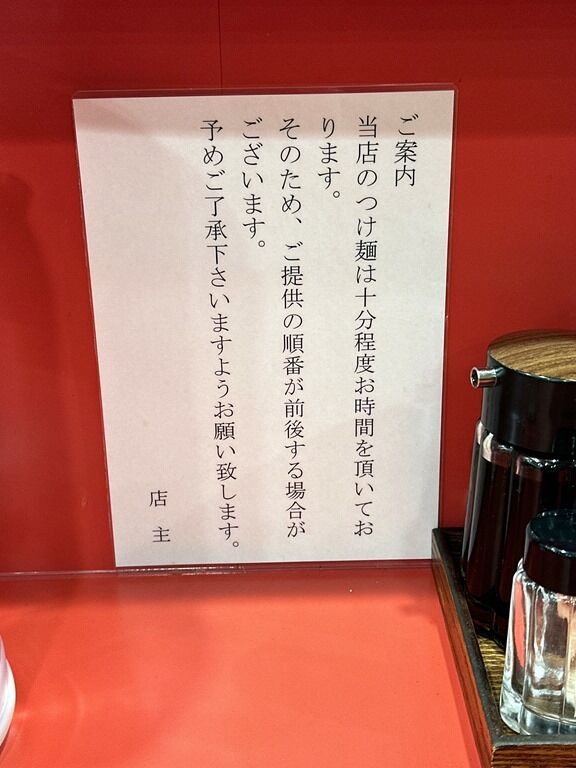 ご案内
当店のつけ麺は十分程度お時間を頂いてお
ります。
そのため、ご提供の順番が前後する場合が
ございます。
予めご了承下さいますようお願い致します。
店主